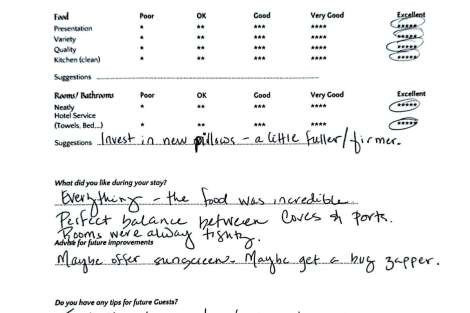 Food Poor OK Good Very Good Excellent
Presentation * ** *** **** *****
Variety * ** *** **** *****
Quality * ** *** **** *****
Kitchen (clean) * ** *** **** *****
Suggestions
Rooms/ Bathrooms Poor OK Good Very Good Excellent
Neatly * ** *** **** *****
Hotel Service
(Towels, Bed...) * ** *** **** *****
Suggestions Invest in new pillows - a little fuller/firmer.
What did you like during your stay?
Everything - the food was incredible
Perfect balance between Coves & Ports.
Rooms were always
Advise for future improvements
Maybe offer sunscreen. Maybe get a bug zapper.
Do you have any tips for future Guests?